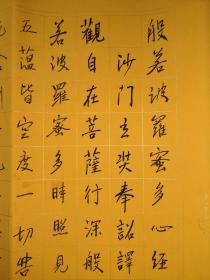 般若波羅蜜多心經
沙門玄奘奉詔譯
觀自在菩薩行深般
若波羅蜜多時照見
五蘊皆空度一切苦